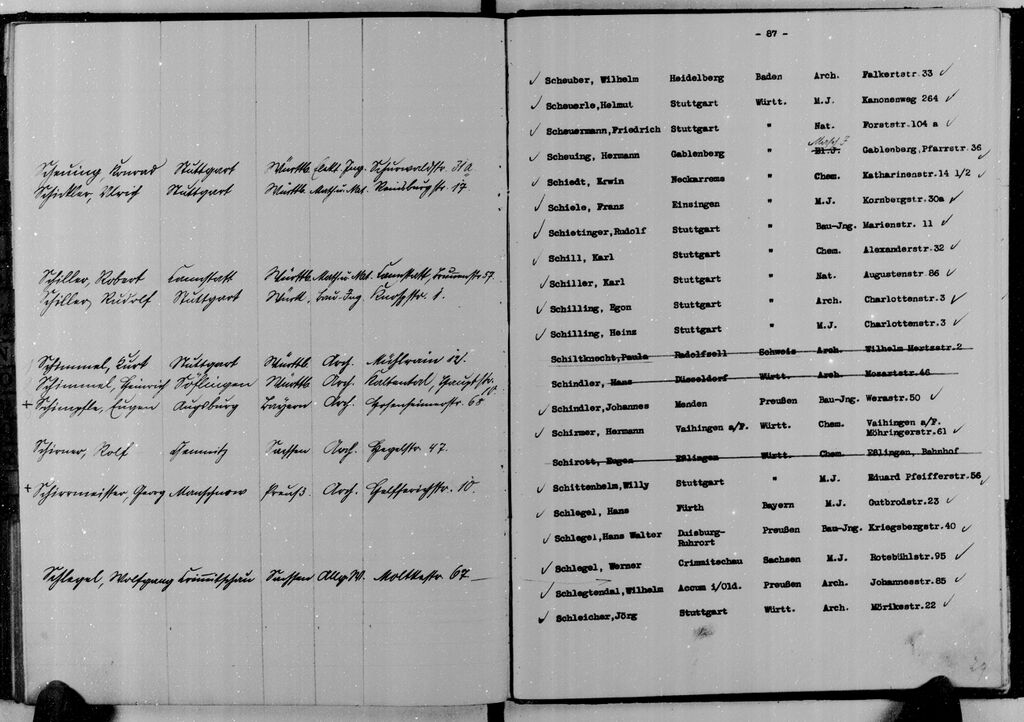 Scheuing Conrad Stuttgart Württb. Elekt. Ing. Schurwaldstr. 31a
Schickler, Ulrich Stuttgart Württb. Math. u. Nat. Reinsburgstr. 17
Schiller, Robert Cannstatt Württb. Math. u. Nat. Cannstatt, Brunnenstr. 57.
Schiller, Rudolf Stuttgart Württ. Bau-Ing. Knospstr. 8.
Schimmel, Kurt Stuttgart Württb. Arch. Mühlrain 12.
Schimmel, Heinrich Söflingen Württb. Arch. Kaltental, Hauptstr. 10.
+ Schimpfle, Eugen Augsburg Bayern Arch. Rosenheimerstr. 68
Schirner, Rolf Chemnitz Sachsen Arch. Hegelstr. 47.
+ Schirrmeister, Georg Manschnow Preuß. Arch. Helfferichstr. 10.
Schlegel, Wolfgang Crimmitschau Sachsen Allg. W. Moltkestr. 67
- 87 -
✓ Scheuber, Wilhelm Heidelberg Baden Arch. Falkertstr.33 ✓
✓ Scheuerle,Helmut Stuttgart Württ. M.J. Kanonenweg 264 ✓
✓ Scheuermann,Friedrich Stuttgart " Nat. Forststr.104 a ✓
✓ Scheuing, Hermann Gablenberg " El.J. Gablenberg,Pfarrstr.36 ✓
✓ Schiedt, Erwin Neckarrems " Chem. Katharinenstr.14 1/2 ✓
✓ Schiele, Franz Einsingen " M.J. Kornbergstr.30a ✓
✓ Schietinger,Rudolf Stuttgart " Bau-Jng. Marienstr. 11 ✓
✓ Schill, Karl Stuttgart " Chem. Alexanderstr.32 ✓
✓ Schiller, Karl Stuttgart " Nat. Augustenstr.86 ✓
✓ Schilling, Egon Stuttgart " Arch. Charlottenstr.3 ✓
✓ Schilling, Heinz Stuttgart " M.J. Charlottenstr.3 ✓
Schiltknecht,Paula Radolfzell Schweiz Arch. Wilhelm Hertzstr.2
Schindler, Hans Düsseldorf Württ. Arch. Mozartstr.46
✓ Schindler,Johannes Menden Preußen Bau-Jng. Werastr.50 ✓
✓ Schirmer, Hermann Vaihingen a/F. Württ. Chem. Vaihingen a/F.
Möhringerstr.61 ✓
Schirott, Eugen Eßlingen Württ. Chem. Eßlingen, Bahnhof
✓ Schittenhelm,Willy Stuttgart " M.J. Eduard Pfeifferstr.56 ✓
✓ Schlegel, Hans Fürth Bayern M.J. Gutbrodstr.23 ✓
✓ Schlegel,Hans Walter Duisburg- Preußen Bau-Jng. Kriegsbergstr.40 ✓
Ruhrort
✓ Schlegel, Werner Crimmitschau Sachsen M.J. Rotebühlstr.95 ✓
✓ Schlegtendal,Wilhelm Accum i/Old. Preußen Arch. Johannesstr.85 ✓
✓ Schleicher,Jörg Stuttgart Württ. Arch. Mörikestr.22 ✓